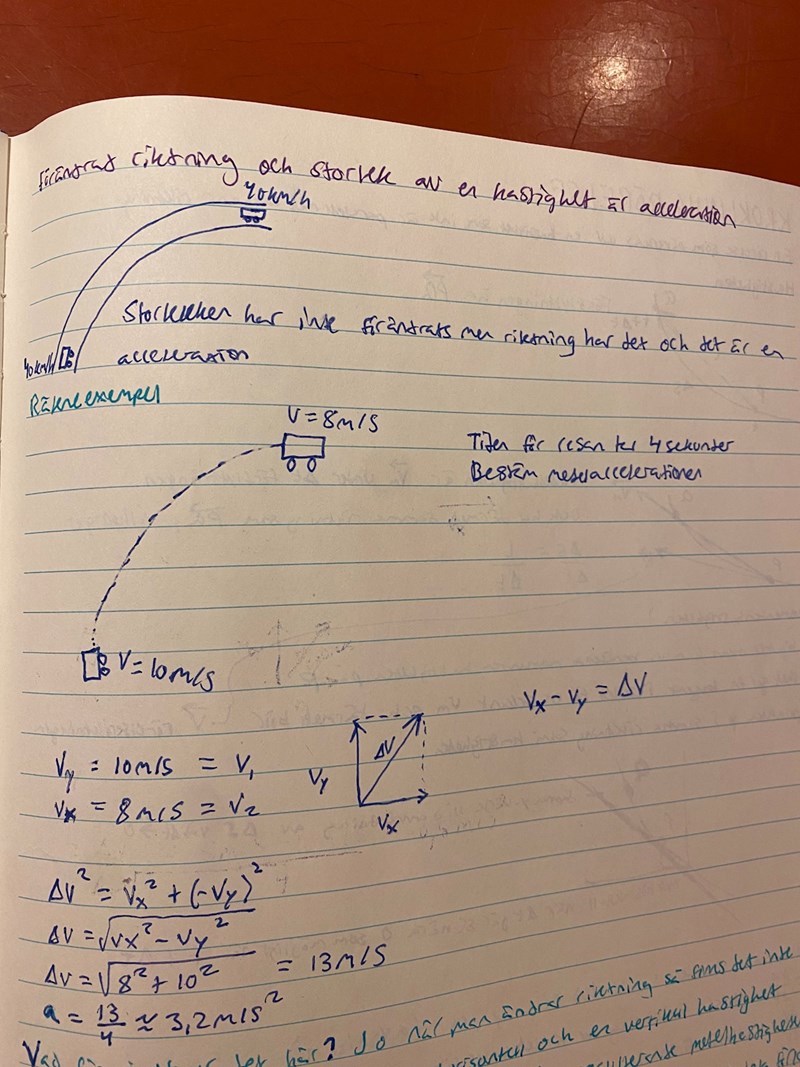 förändrat riktning och storlek av en hastighet är acceleration
40km/h
Storleken har inte förändrats men riktning har det och det är en
40km/h
acceleration
Räkneexempel
V=8m/s
Tiden för resan tar 4 sekunder
Bestäm medelaccelerationen
V=10m/s
Vx - Vy = ΔV
Vy = 10m/s = V₁
Vx = 8m/s = V₂
ΔV
Vy
Vx
ΔV² = Vx² + (-Vy)²
ΔV = √Vx² - Vy²
ΔV = √8² + 10² = 13m/s
a = 13/4 ≈ 3,2m/s²
Vad det här? Jo när man ändrar riktning så finns det inte
och en vertikal hastighet